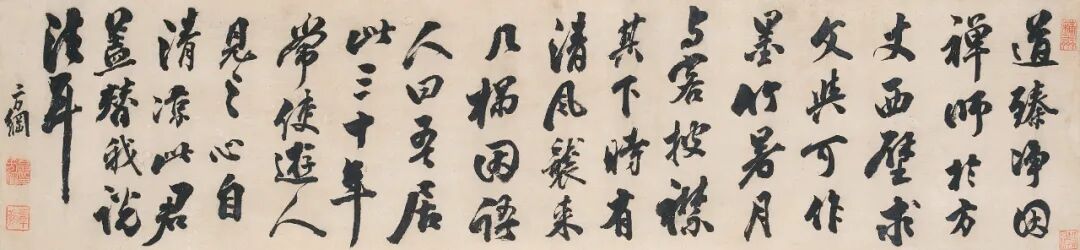 道臻淨因
禪師於方
丈西壁求
文與可作
墨竹暑月
与客披襟
其下時有
清風襲来
几榻因語
人曰吾居
此三十年
常使遊人
見之心自
清凉此君
蓋替我説
法耳
方綱